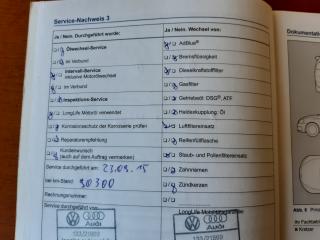 Service-Nachweis 3
Dokumentatio
Ja / Nein. Durchgeführt wurde:
Ölwechsel-Service
im Verbund
Intervall-Service
inklusive Motorölwechsel
im Verbund
Inspektions-Service
LongLife Motoröl verwendet
Korrosionsschutz der Karosserie prüfen
Reparaturempfehlung
Kundenwunsch
(auch auf dem Auftrag vermerken)
Service durchgeführt am: 23.09.15
bei km-Stand: 90300
Rechnungsnummer:
Service durchgeführt von:
Ja / Nein. Wechsel von:
AdBlue®
Bremsflüssigkeit
Dieselkraftstofffilter
Gasfilter
Getriebeöl: DSG®, ATF
Luftfiltereinsatz
Reifenfüllflasche
Staub- und Pollenfiltereinsatz
Zahnriemen
Zündkerzen
Audi
133/21869
Audi
133/21869